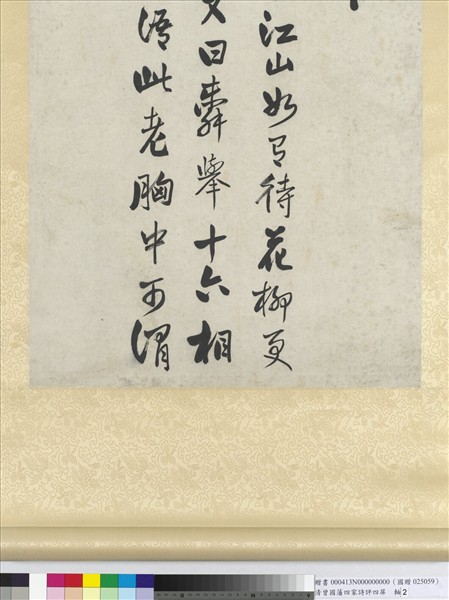 江山如有待花柳更
又曰舜舉十六相
語此老胸中可謂
贈書 000413N000000000（國贈 025059）
清曾國藩四家詩評四屏 軸2